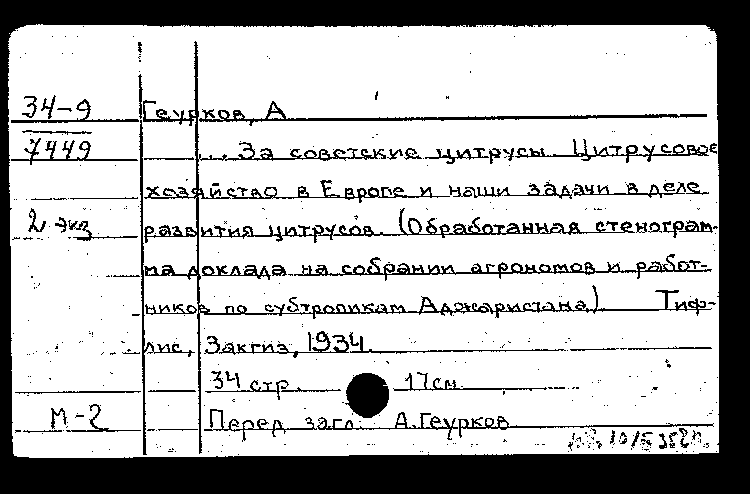 34-9 Геурков, А
7449 ... За советские цитрусы. Цитрусовое
хозяйство в Европе и наши задачи в деле
2 экз развития цитрусов. (Обработанная стенограм-
ма доклада на собрании агрономов и работ-
ников по субтропикам Аджаристана). Тиф-
лис, Закгиз, 1934.
34 стр. 17см
М-2 Перед загл. А.Геурков